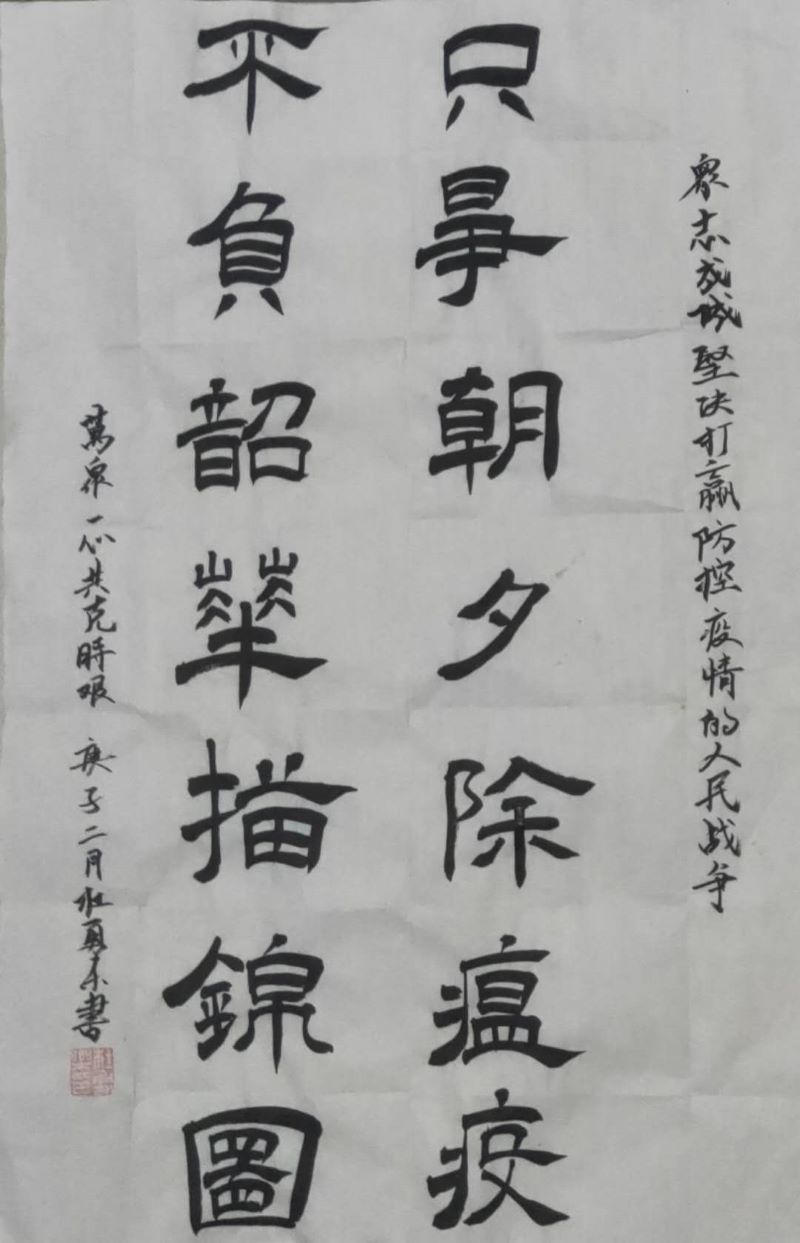 衆志成城坚决打赢防控疫情的人民战争
只爭朝夕除瘟疫
不負韶華描錦圖
萬衆一心共克時艰 庚子二月 書